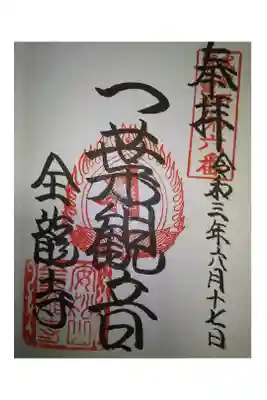 奉拝
令和三年六月十七日
一葉観音
全龍寺